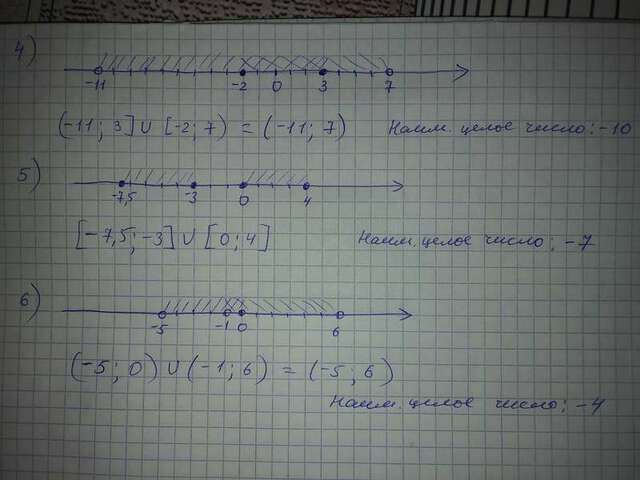 4)
-11 -2 0 3 7
(-11; 3] ∪ [-2; 7) = (-11; 7) Наим. целое число: -10
5)
-7,5 -3 0 4
[-7,5; -3] ∪ [0; 4] Наим. целое число: -7
6)
-5 -1 0 6
(-5; 0) ∪ (-1; 6) = (-5; 6)
Наим. целое число: -4